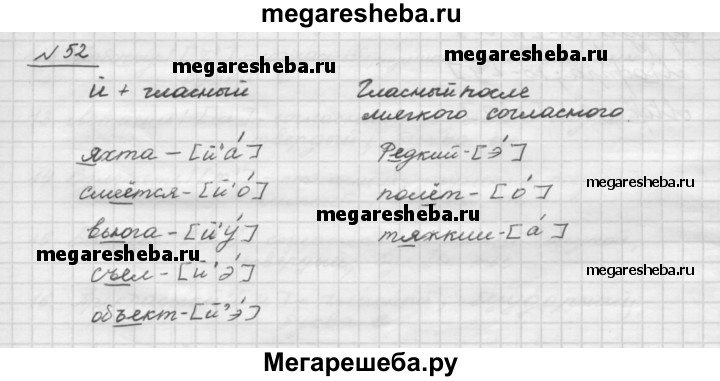 megaresheba.ru
№ 52
megaresheba.ru
й + гласный
Гласный после
мягкого согласного.
megaresheba.ru
яхта – [й'а́]
Редкий - [э́]
смеётся - [й'о́]
полёт - [о́]
megaresheba.ru
вьюга – [й'у́]
тяжкий - [а́]
megaresheba.ru
megaresheba.ru
megaresheba.ru
съел – [й'э́]
объект - [й'э́]
Мегарешеба.ру